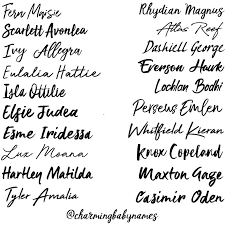 Fern Maisie
Scarlett Avonlea
Ivy Allegra
Eulalia Hattie
Isla Ottilie
Elsie Judea
Esme Iridessa
Lux Moana
Hartley Matilda
Tyler Amalia
Rhydian Magnus
Atlas Reef
Dashiell George
Everson Hawk
Lochlan Bodhi
Perseus Emlen
Whitfield Kieran
Knox Copeland
Maxton Gage
Casimir Oden
@charmingbabynames